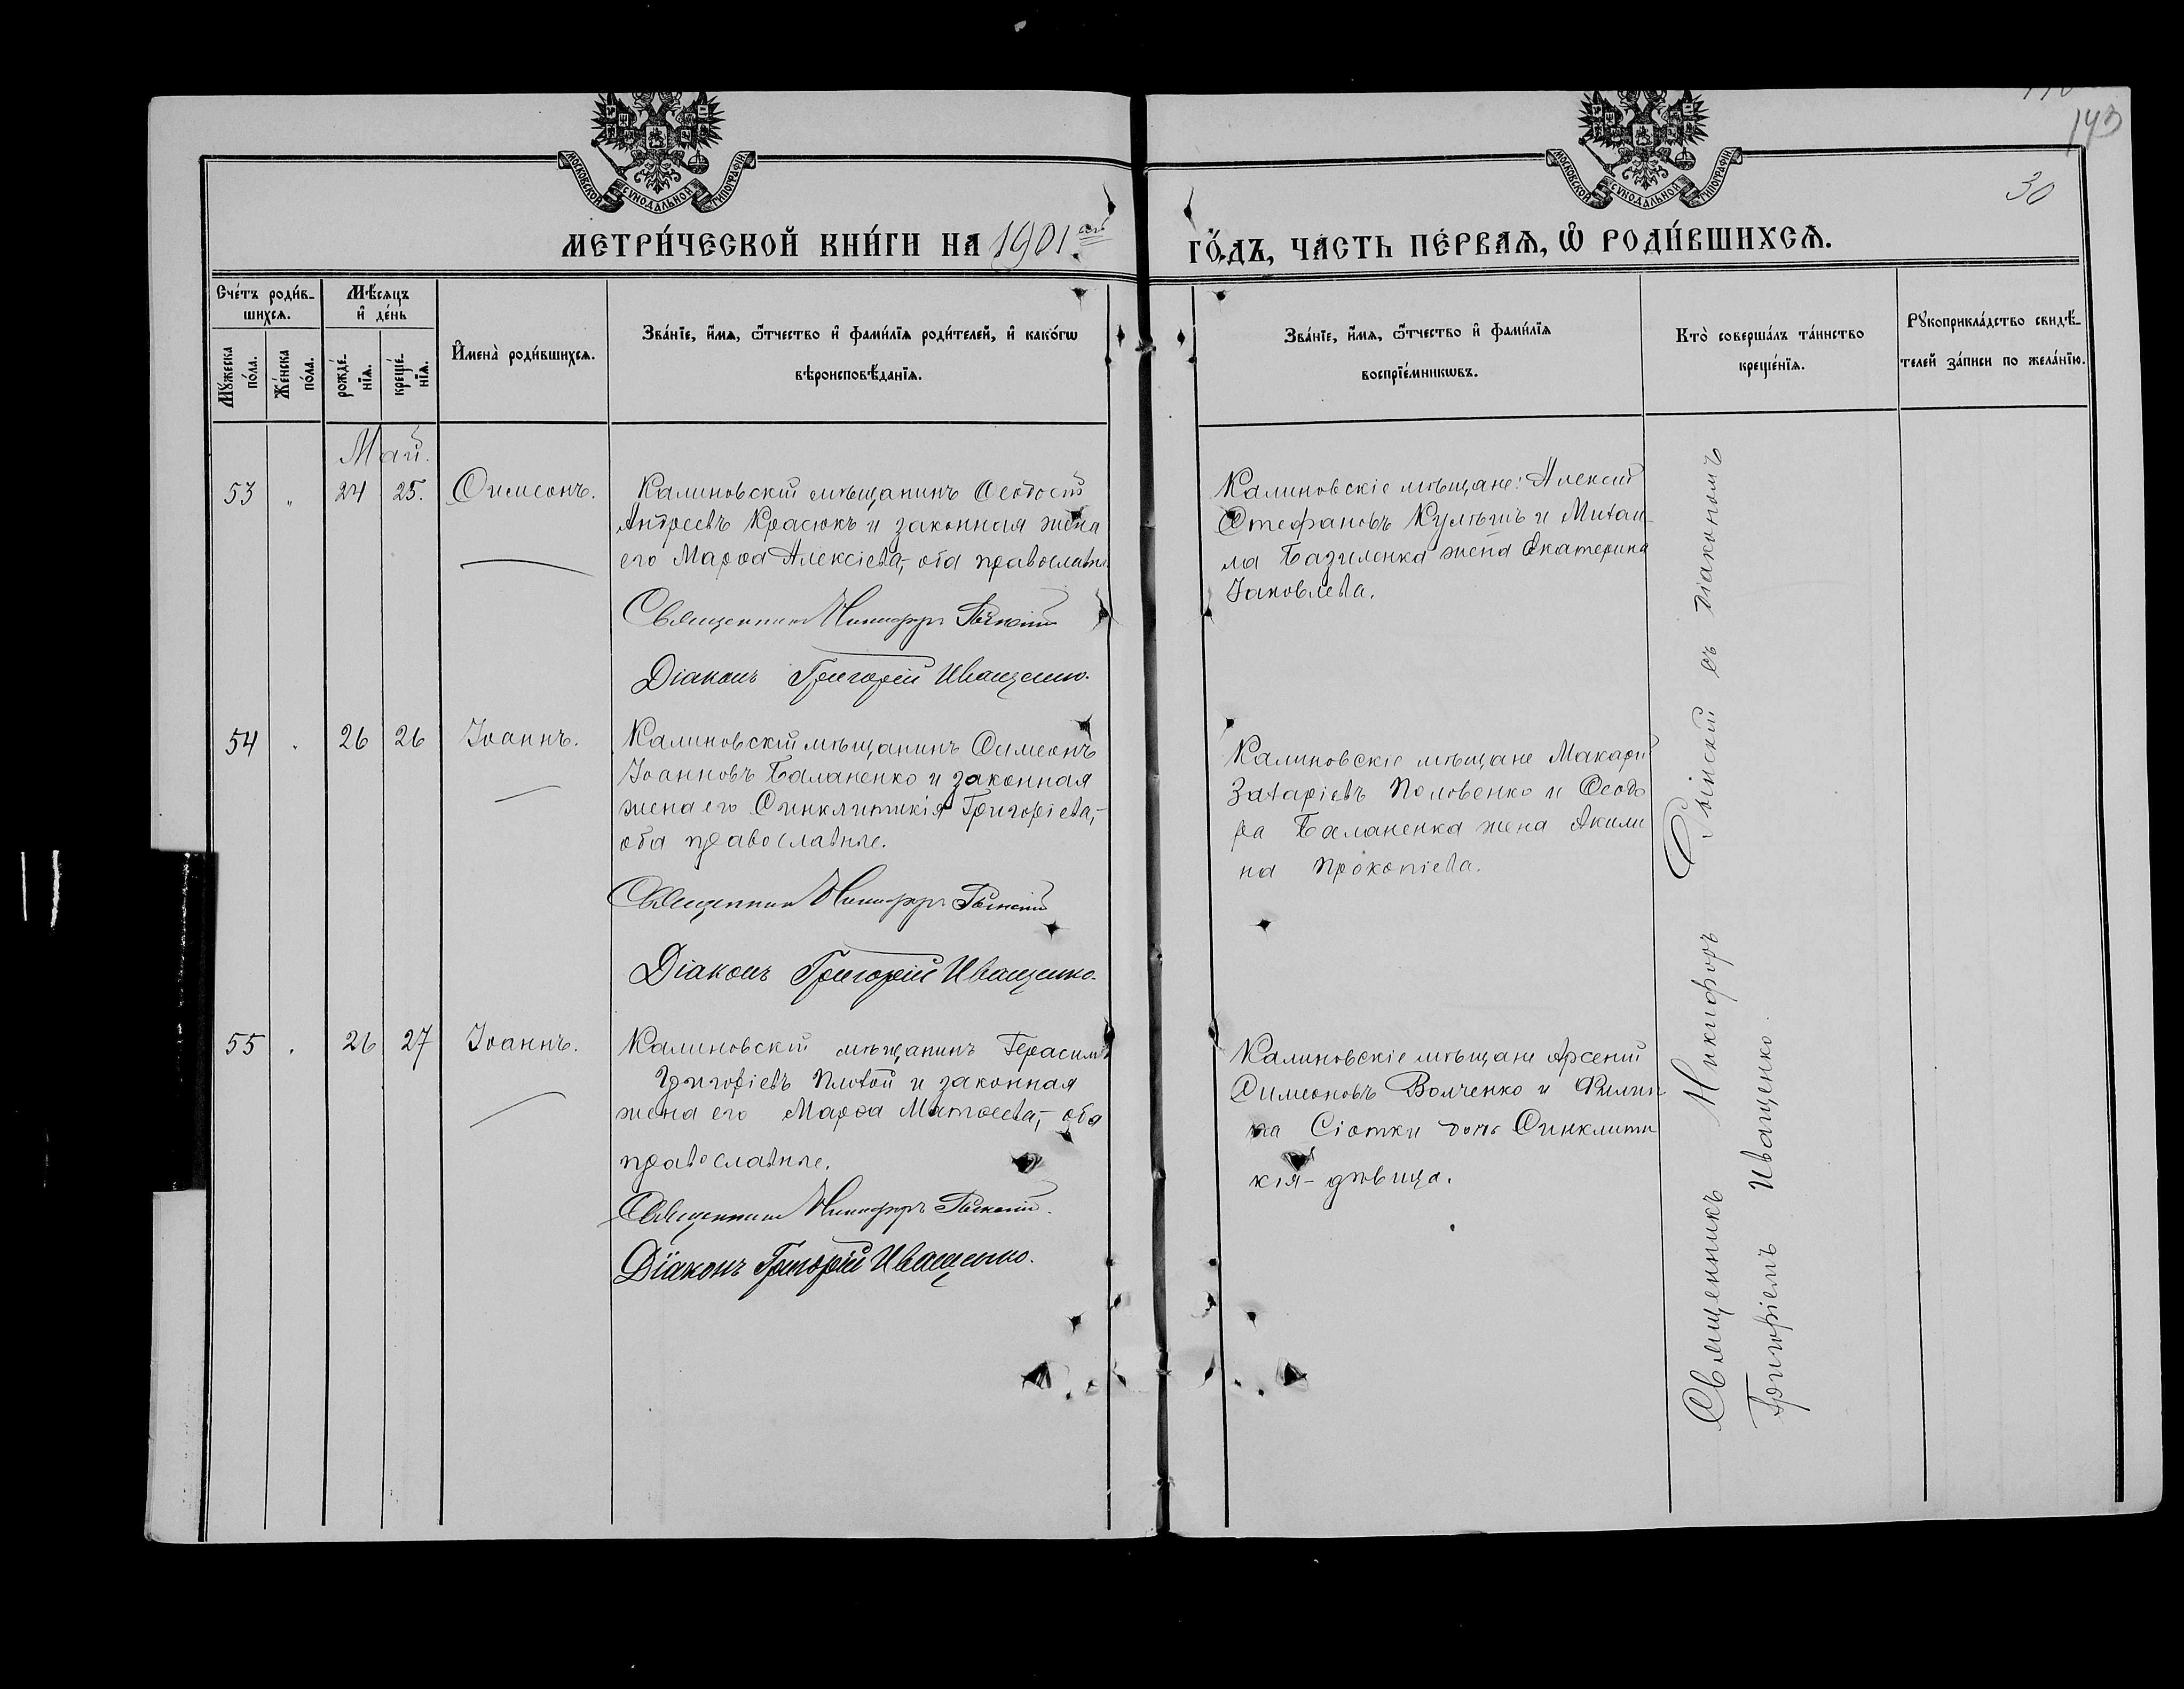 МОСКОВСКОЙ СѴНОДАЛЬНОЙ ТИПОГРАФІИ
МОСКОВСКОЙ СѴНОДАЛЬНОЙ ТИПОГРАФІИ
143
30
МЕТРИ́ЧЕСКОЙ КНИ́ГИ НА 1901
ГО́ДЪ, ЧА́СТЬ ПЕ́РВАѦ, Ѡ҆ РОДИ́ВШИХСѦ.
Сче́тъ роди́в-
шихсѧ.
Мѣ́сѧцъ
и҆ де́нь
Мꙋ́жеска
по́ла.
Же́нска
по́ла.
рожде́-
нїѧ.
креще́-
нїѧ.
И҆мена̀ роди́вшихсѧ.
Зва́нїе, и҆́мѧ, ѻ҆́тчество и҆ фами́лїѧ роди́телей, и҆ како́гѡ
вѣроисповѣ́данїѧ.
Зва́нїе, и҆́мѧ, ѻ҆́тчество и҆ фами́лїѧ
воспрїе́мникѡвъ.
Кто̀ соверша́лъ та́инство
креще́нїѧ.
Рꙋкоприкла́дство свидѣ́-
телей за́писи по жела́нїю.
Май.
53 " 24 25. Симеонъ.
Калиновскій мѣщанинъ Ѳеодосій
Андреевъ Красюкъ и законная жена
его Марѳа Алексіева, оба православн.
Священник Никифоръ
Діаконъ Григорій Иващенко.
Калиновскіе мѣщане: Алексій
Стефановъ Кулѣшъ и Михаи-
ла Базиленка жена Екатерина
Іаковлева.
54 " 26 26 Іоаннъ.
Калиновскій мѣщанинъ Симеонъ
Іоанновъ Баланенко и законная
жена его Синклитикія Григоріева,-
оба православные.
Священник Никифоръ
Діаконъ Григорій Иващенко.
Калиновскіе мѣщане Макарій
Захаріевъ Половенко и Ѳеодо
ра Баланенка жена Акили
на Прокопіева.
55 . 26 27 Іоаннъ.
Калиновскій мѣщанинъ Герасимъ
Григоріевъ Плохой и законная
жена его Марѳа Матѳеева,- оба
православные.
Священник Никифоръ
Діаконъ Григорій Иващенко.
Калиновскіе мѣщане Арсеній
Симеоновъ Волченко и Филип
па Сіотки дочь Синклити
кія- дѣвица.
Священникъ Никифоръ съ діакономъ
Григоріемъ Иващенко.